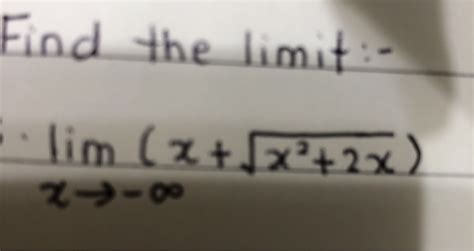 Find the limit:-
. lim (x + √x²+2x)
x→-∞